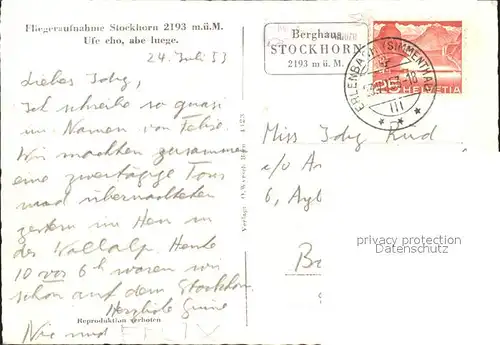 Fliegeraufnahme Stockhorn 2193 m.ü.M.
Ufe cho, abe luege.
24. Juli 53
Liebes Idy,
Ich schreibe so quasi
im Namen von Felix.
Wir machten zusammen
eine zweitägige Tour
und übernachteten
gestern im Heu in
der Vallalp. Heute
10 vor 6h waren wir
schon auf dem Stockhorn.
Herzliche Grüsse
und FELIX
Reproduktion verboten
Verlag: O. Bern 4323
Berghaus
STOCKHORN
2193 m ü. M.
ERLENBACH (SIMMENTHAL)
HELVETIA
Miss Idy
c/o
6,
privacy protection
DatenSchutz